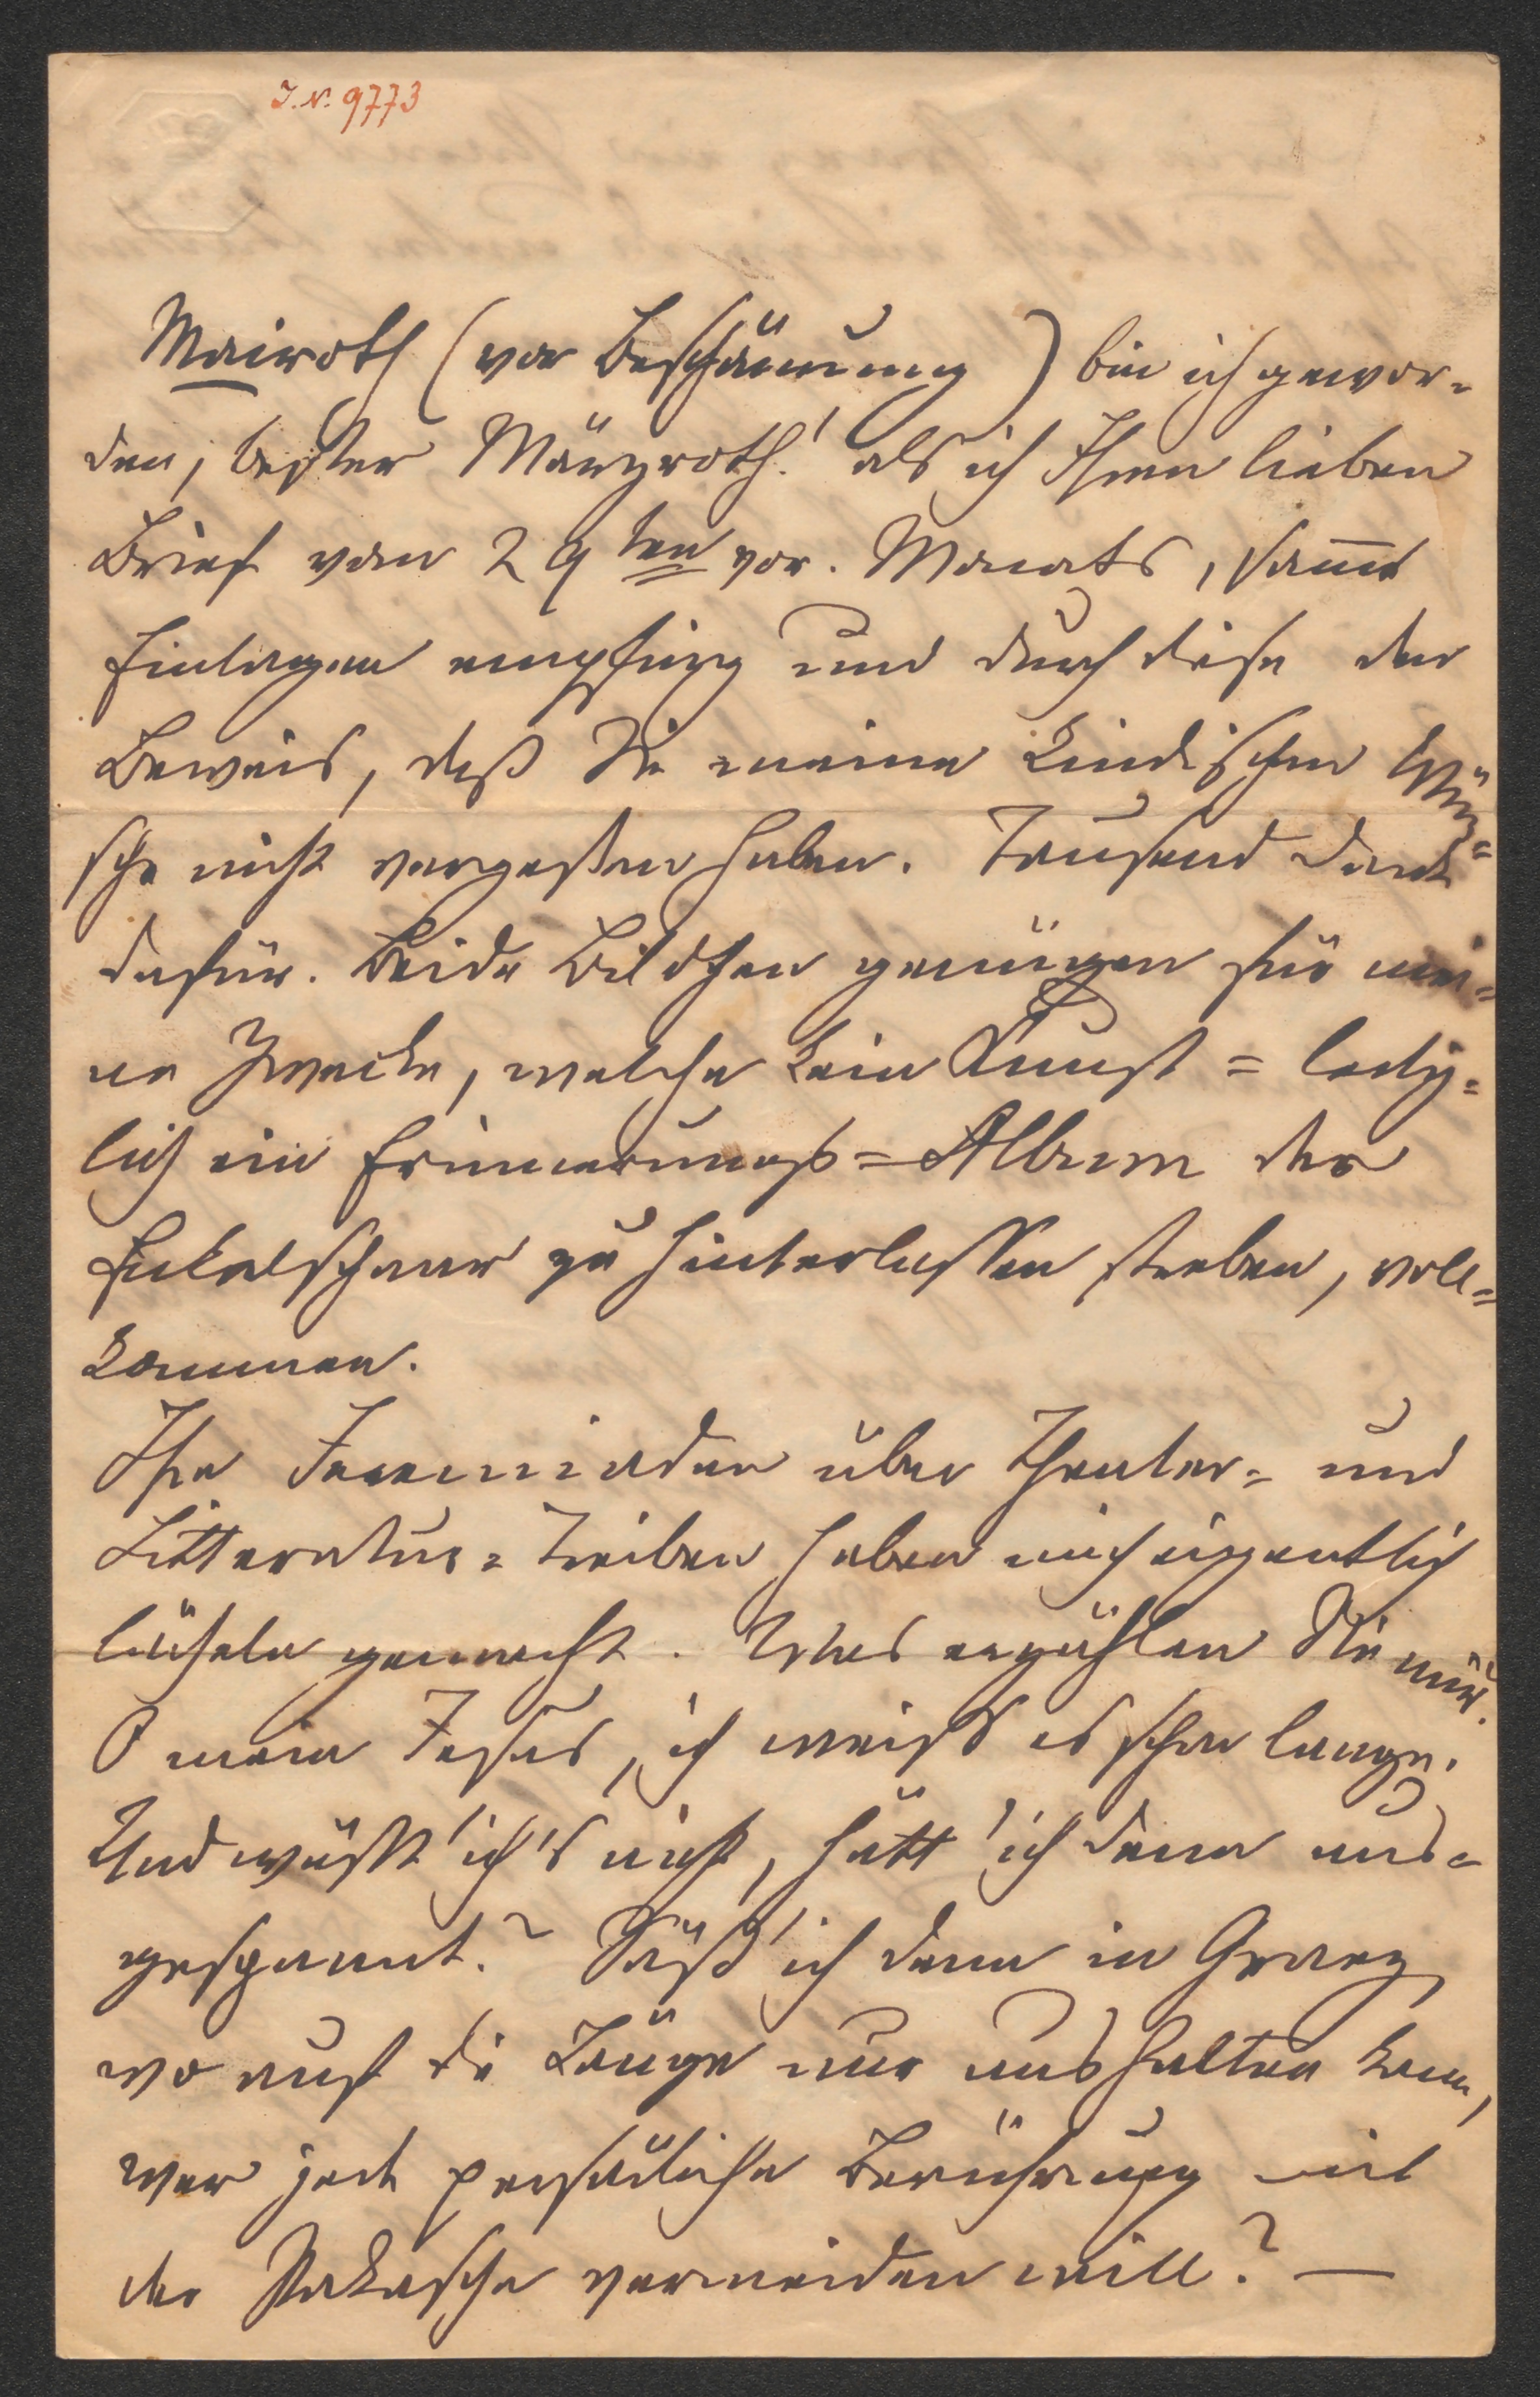 J. N. 9773
Mairoth (vor Beschämung) bin ich gewor=
den, bester Märzroth! als ich Ihren lieben
Brief vom 29ten vor. Monats, sam̄t
Einlagen empfing und durch diese den
Beweis, daß Sie meine kindischen Wün=
sche nicht vergeßen haben. Tausend Dank
dafür. Beide Bildchen genügen für mei=
ne Zwecke, welche kein Kunst= ledig=
lich ein Erinnerungs=Album der
Enkelschaar zu hinterlassen streben, voll=
kommen.
Ihre Jeremiaden über Theater= und
Litteratur=Treiben haben mich eigentlich
lächeln gemacht. Was erzählen Sie mir.
O mein Jesus, ich weiß es schon lange.
Und wüßt' ich's nicht, hätt' ich denn aus=
gespannt? Säß' ich denn in Graez,
wo auf die Länge nur aushalten kann,
wer jede persönliche Berührung mit
der Pakasche vermeiden will? —